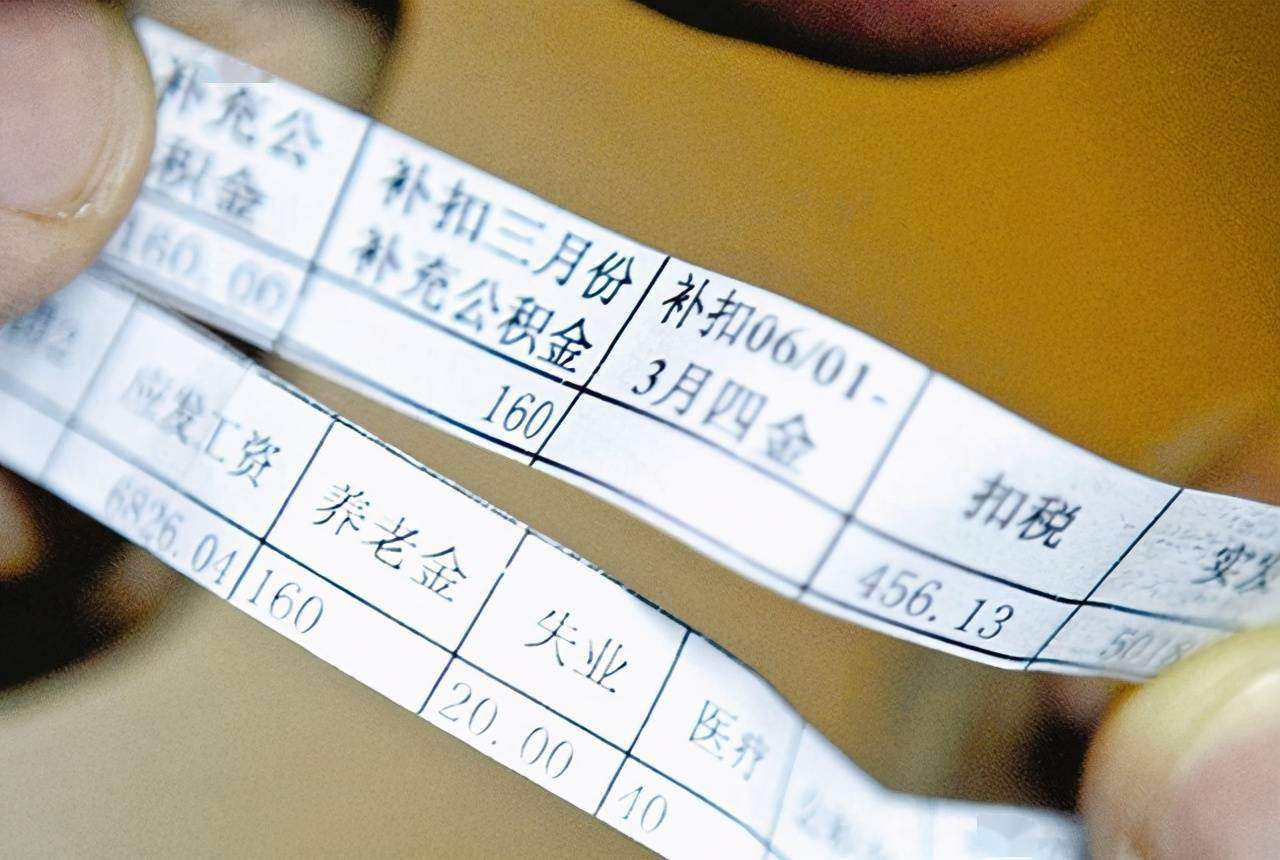 补充公
积金
160.00
补扣三月份
补充公积金
160
补扣06/01-
3月四金
扣税
456.13
实发
5018
应发工资
6826.04
养老金
160
失业
20.00
医疗
40